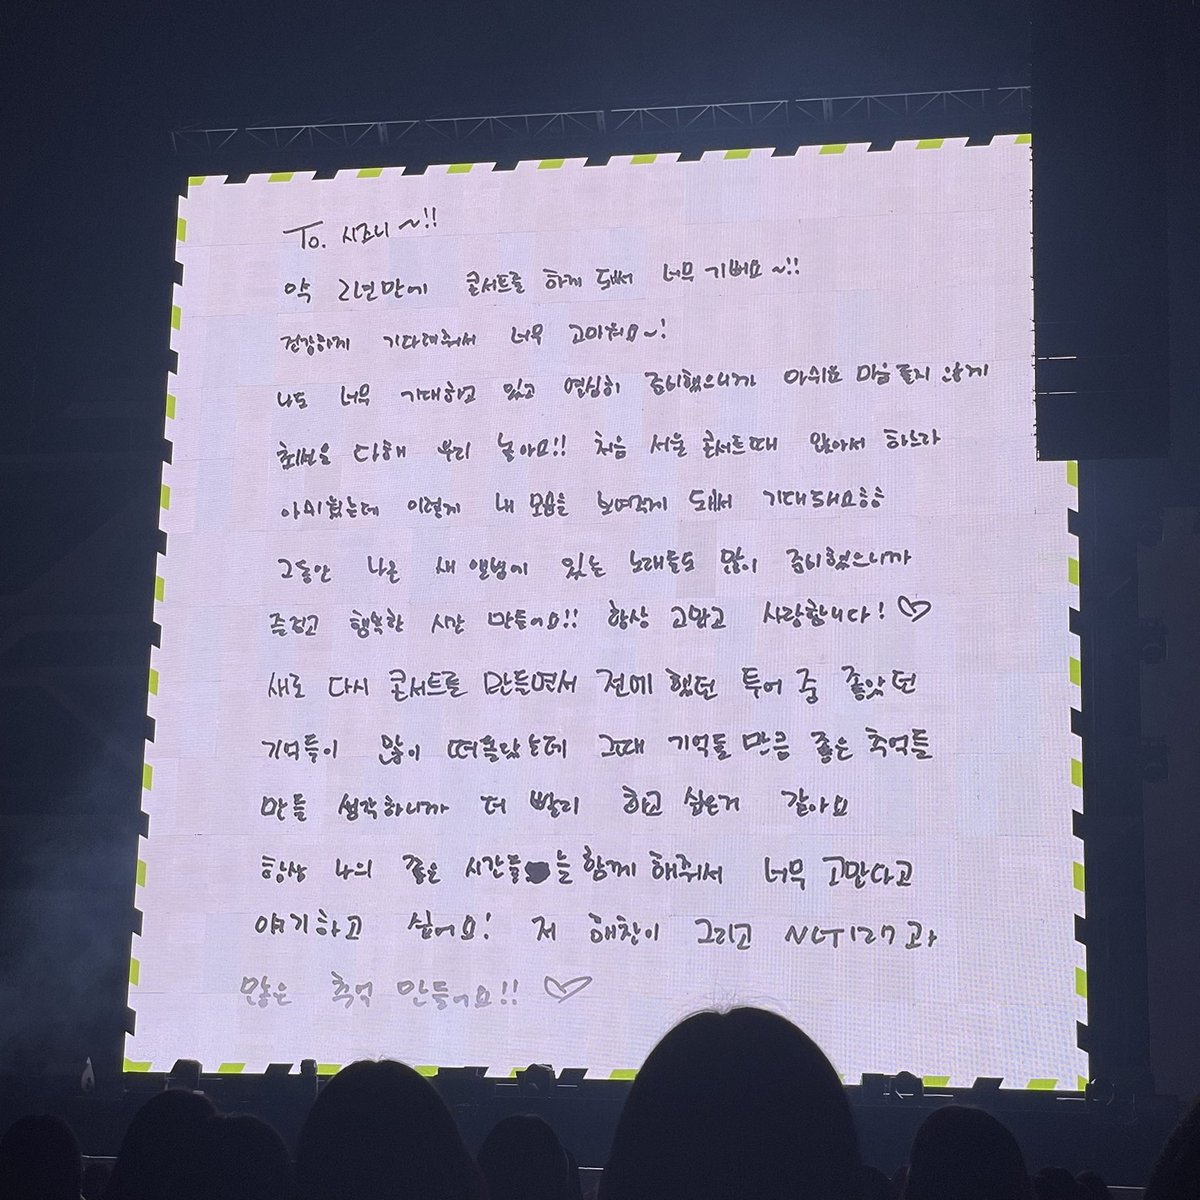 To. 시즈니~!!
약 2년만에 콘서트를 하게 돼써 너무 기뻐요~!!
건강하게 기다려줘서 너무 고마워요~!
나도 너무 기대하고 있고 열심히 준비했으니까 아쉬운 마음 들지 않게
최선을 다해 우리 놀아요!! 처음 서울 콘서트때 앉아서 하느라
아쉬웠는데 이렇게 내 모습을 보여주게 돼써 기대돼요ㅎㅎ
그동안 나온 새 앨범에 있는 노래들도 많이 준비했으니까
즐겁고 행복한 시간 만들어요!! 항상 고맙고 사랑합니다!♡
새로 다시 콘서트를 만들면서 전에 했던 투어 중 좋았던
기억들이 많이 떠올랐는데 그때 기억들 만큼 좋은 추억들
만들 생각하니까 더 빨리 하고 싶은거 같아요
항상 나의 좋은 시간들 늘 함께 해줘서 너무 고맙다고
얘기하고 싶어요! 저 해찬이 그리고 NCT127과
많은 추억 만들어요!! ♡